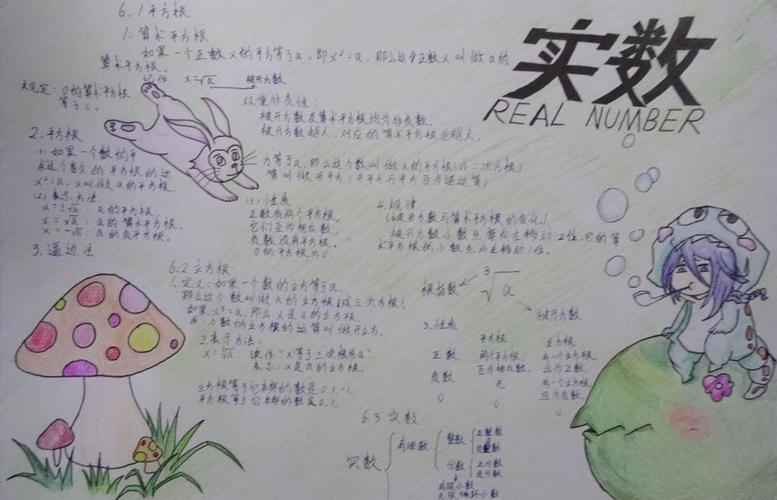 实数
REAL NUMBER
6.1平方根
1.算术平方根
如果一个正数x的平方等于a,即x²=a,那么这个正数x叫做a的
算术平方根。
记作 x=√a 被开方数
规定:0的算术平方根
等于0。
双重非负性:
被开方数及算术平方根均为非负数。
被开方数越大,对应的算术平方根也越大。
2.平方根
(1)如果一个数的平
方等于a,那么这个数叫做a的平方根(或二次方根)
求这个数a的平方根的运
算叫做开平方(开平方与平方互为逆运算)
x²=a,x叫做a的平方根。
(2)表示方法
x=±√a:a的平方根
x=√a:a的算术平方根。
x=-√a:a的负平方根。
(3)性质
正数有两个平方根,
它们互为相反数。
负数没有平方根。
0的平方根为0。
3.逼近法
4.规律
(被开方数与算术平方根的变化)
被开方数小数点每向左移动2位,它的算
术平方根的小数点向左移动1位。
6.2立方根
1.定义:如果一个数的立方等于a,
那么这个数叫做a的立方根(或三次方根)
如果x³=a,那么x是a的立方根。
求一个数的立方根的运算叫做开立方。
2.表示方法:
x=³√a 读作:"x等于三次根号a"
表示:x是a的立方根。
立方根等于它本身的数是0,1,-1.
平方根等于它本身的数是0.
根指数 ³√a 被开方数
3.性质
平方根 立方根
正数 两个平方根, 有一个立方根
互为相反数. 也为正数.
负数 无 有一个立方根
也为负数.
0 0 0
6.3实数
实数
有理数
整数
正整数
0
负整数
分数
正分数
负分数
有限小数
无限循环小数